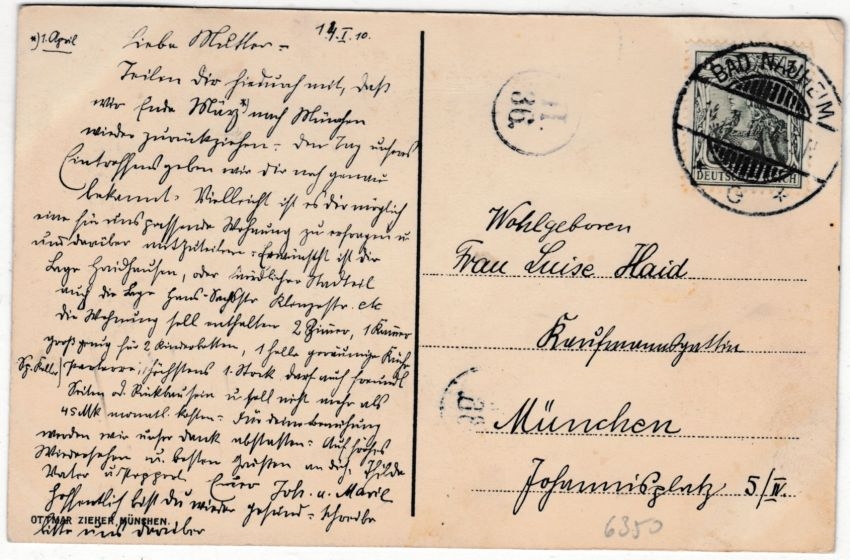 *) 1. April
Liebe Mutter =
12.I.10.
Teilen dir hiedurch mit, daß
wir Ende März *) nach München
wieder zurückziehen = den Tag unseres
Eintreffens geben wir dir noch genau
bekannt. Vielleicht ist es dir möglich
eine für uns passende Wohnung zu erfragen u
uns darüber mitzuteilen = Erwünscht ist die
Lage Haidhausen, oder südlicher Stadtteil
auch die Lage Hans-Sachsstr Klenzestr. etc
die Wohnung soll enthalten 2 Zimmer, 1 Kammer
groß genug für 2 Kinderbetten, 1 helle geräumige Küche
Sp. Keller
Parterre, höchstens 1. Stock. darf auch
Seiten od. Rückbau sein u soll nicht mehr als
45 Mk monatl. kosten = Für deine Bemühung
werden wir unser Dank abstatten = Auf frohes
Wiedersehen u. besten Grüßen an dich, Thilda
Vater u
Euer Joh. u. Marie
Hoffentlich bist du wieder gesund = schreibe
bitte uns darüber
OTTMAR ZIEHER, MÜNCHEN.
36.
BAD NAUHEIM
DEUTSCHES REICH
Wohlgeboren
Frau Luise Haid
Kaufmannsgattin
München
Johannisplatz 5/IV.
6350